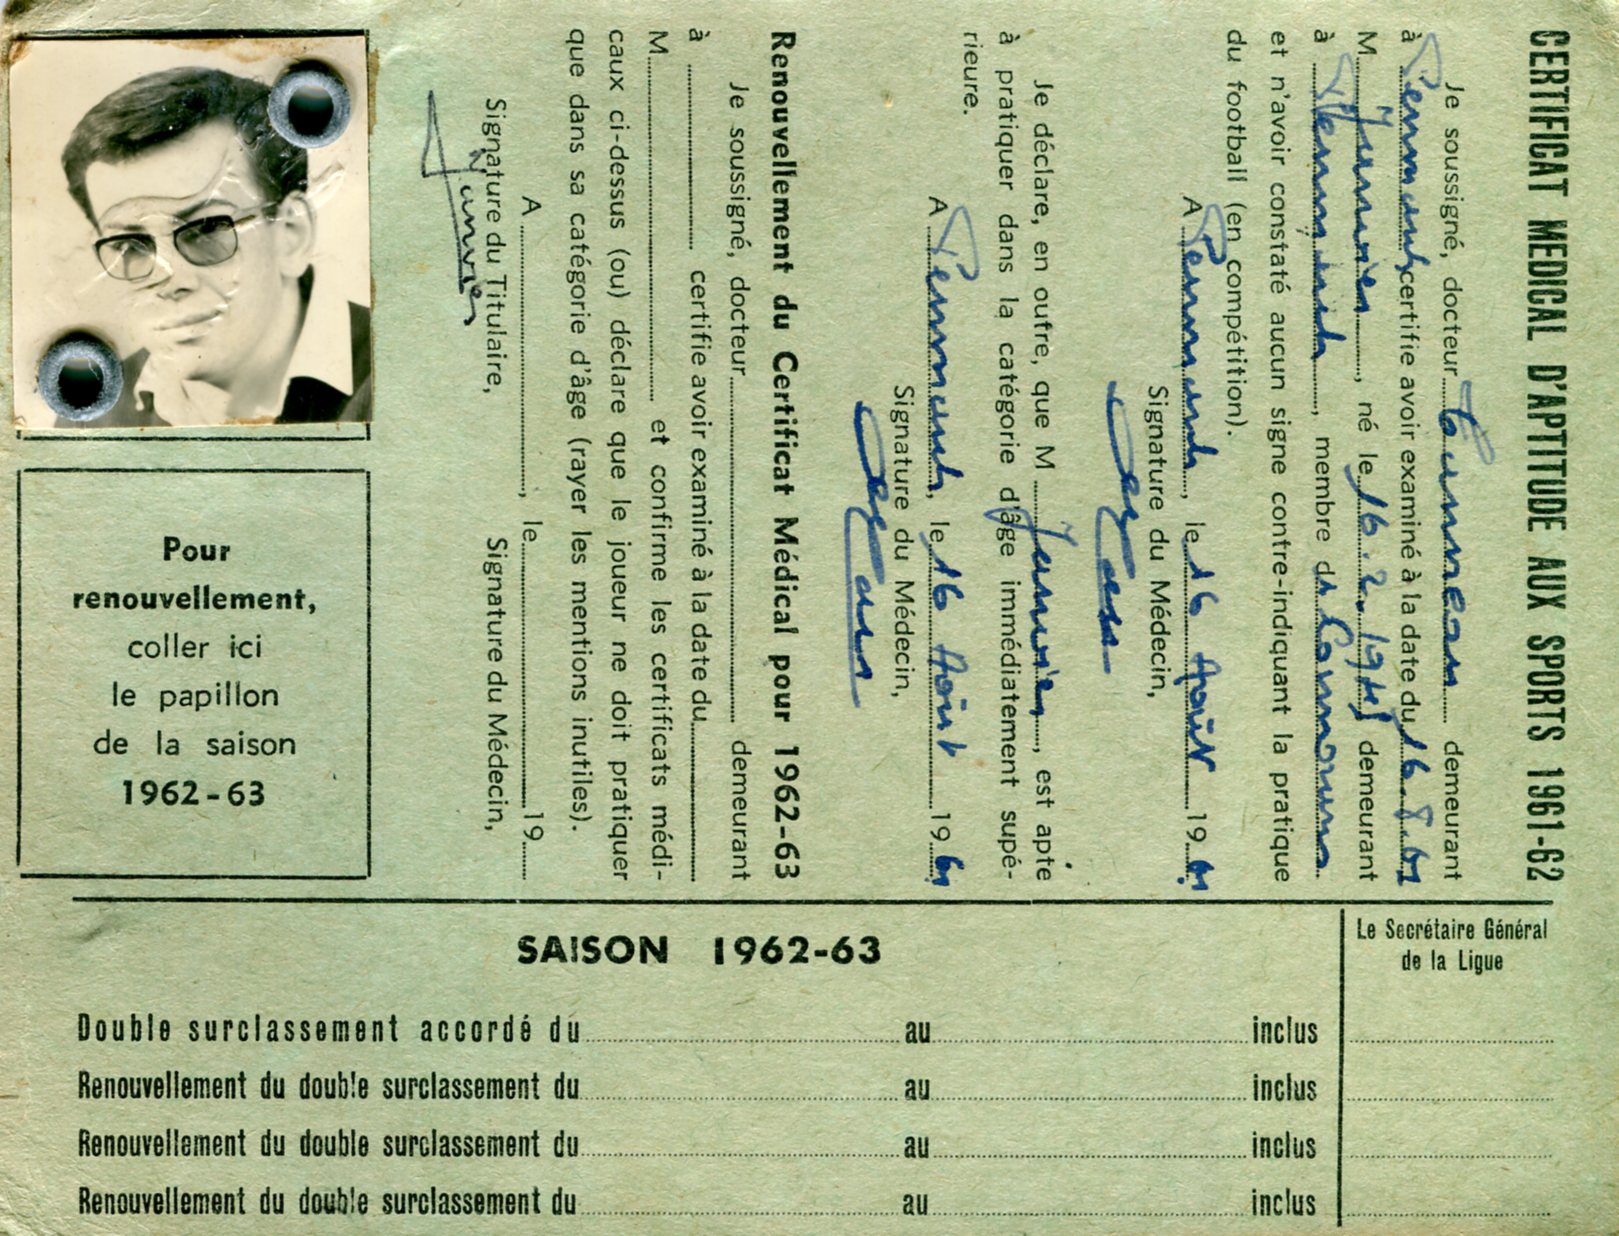 CERTIFICAT MEDICAL D'APTITUDE AUX SPORTS 1961-62
Je soussigné, docteur demeurant
à certifie avoir examiné à la date du 16.8.61
M. Janvier, né le 16.2.1945 demeurant
à, membre du
et n'avoir constaté aucun signe contre-indiquant la pratique
du football (en compétition).
A, le 16 Août 1961
Signature du Médecin,
Je déclare, en outre, que M Janvier, est apte
à pratiquer dans la catégorie d'âge immédiatement supé-
rieure.
A, le 16 Août 1961
Signature du Médecin,
Renouvellement du Certificat Médical pour 1962-63
Je soussigné, docteur demeurant
à certifie avoir examiné à la date du
M. et confirme les certificats médi-
caux ci-dessus (ou) déclare que le joueur ne doit pratiquer
que dans sa catégorie d'âge (rayer les mentions inutiles).
A, le 19
Signature du Titulaire, Signature du Médecin,
Janvier
Pour
renouvellement,
coller ici
le papillon
de la saison
1962-63
SAISON 1962-63
Le Secrétaire Général
de la Ligue
Double surclassement accordé du au inclus
Renouvellement du double surclassement du au inclus
Renouvellement du double surclassement du au inclus
Renouvellement du double surclassement du au inclus